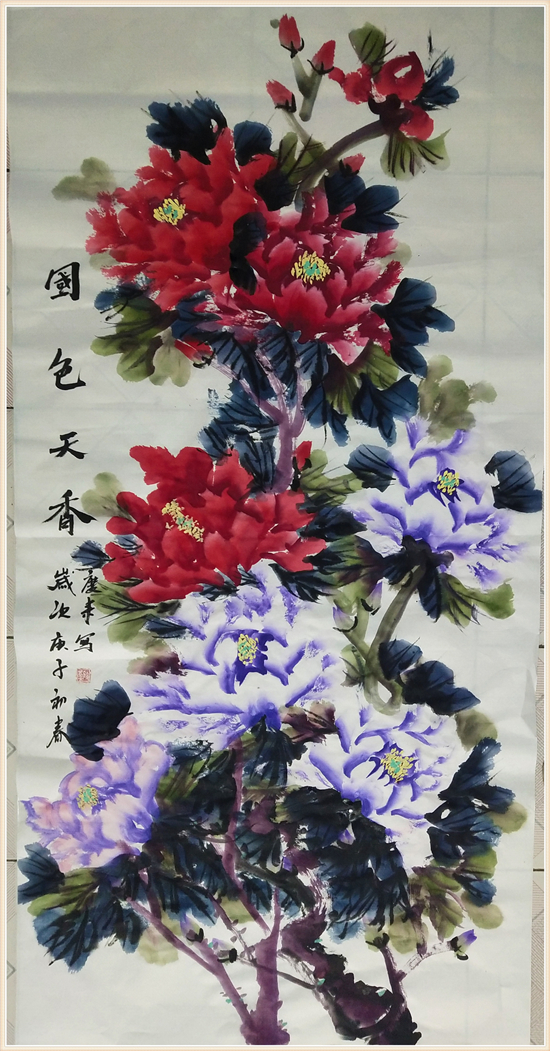 國色天香
歲次庚子初春
来寫